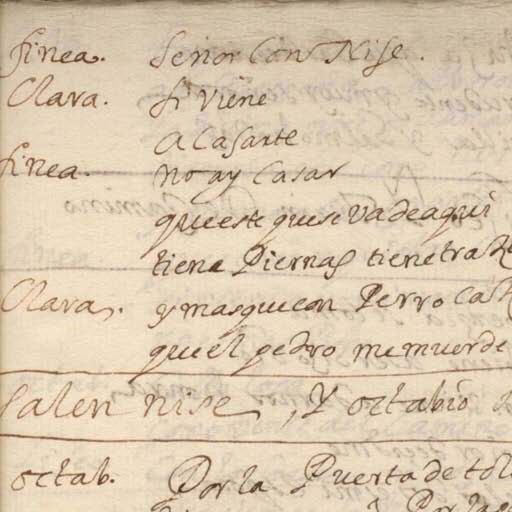 finea. señor Con Nise.
Clara. si viene
a Casarte
finea. no ay Casar
que este que se va de aqui
tiene Piernas tiene tra
Clara. y mas que con Perro Cas
que el pedro me muerde
salen nise, Y octabio
octab. Por la Puerta de tol